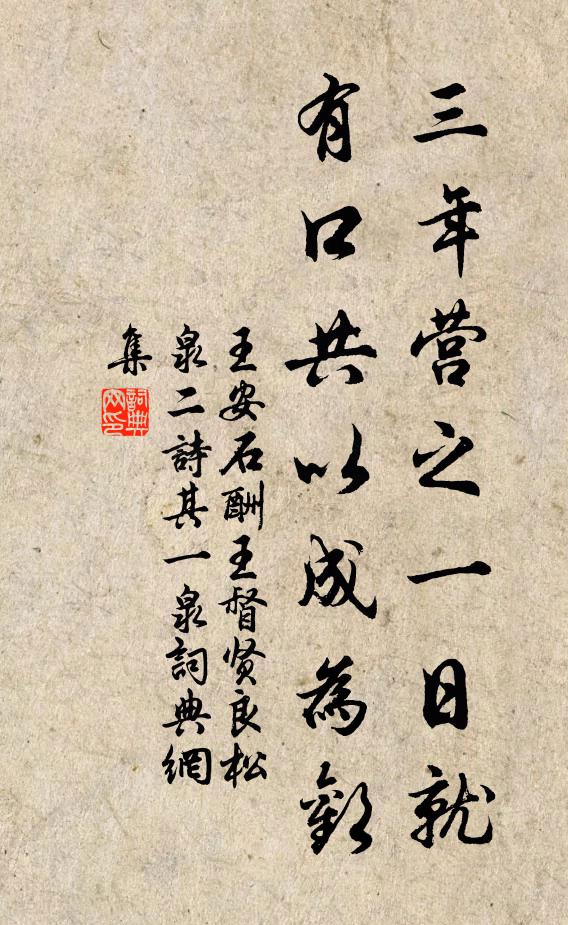 三年营之一日就
有口共以成為歡
王安石酬王督贤良松
泉二詩其一泉詞典網
集
詞典
网印